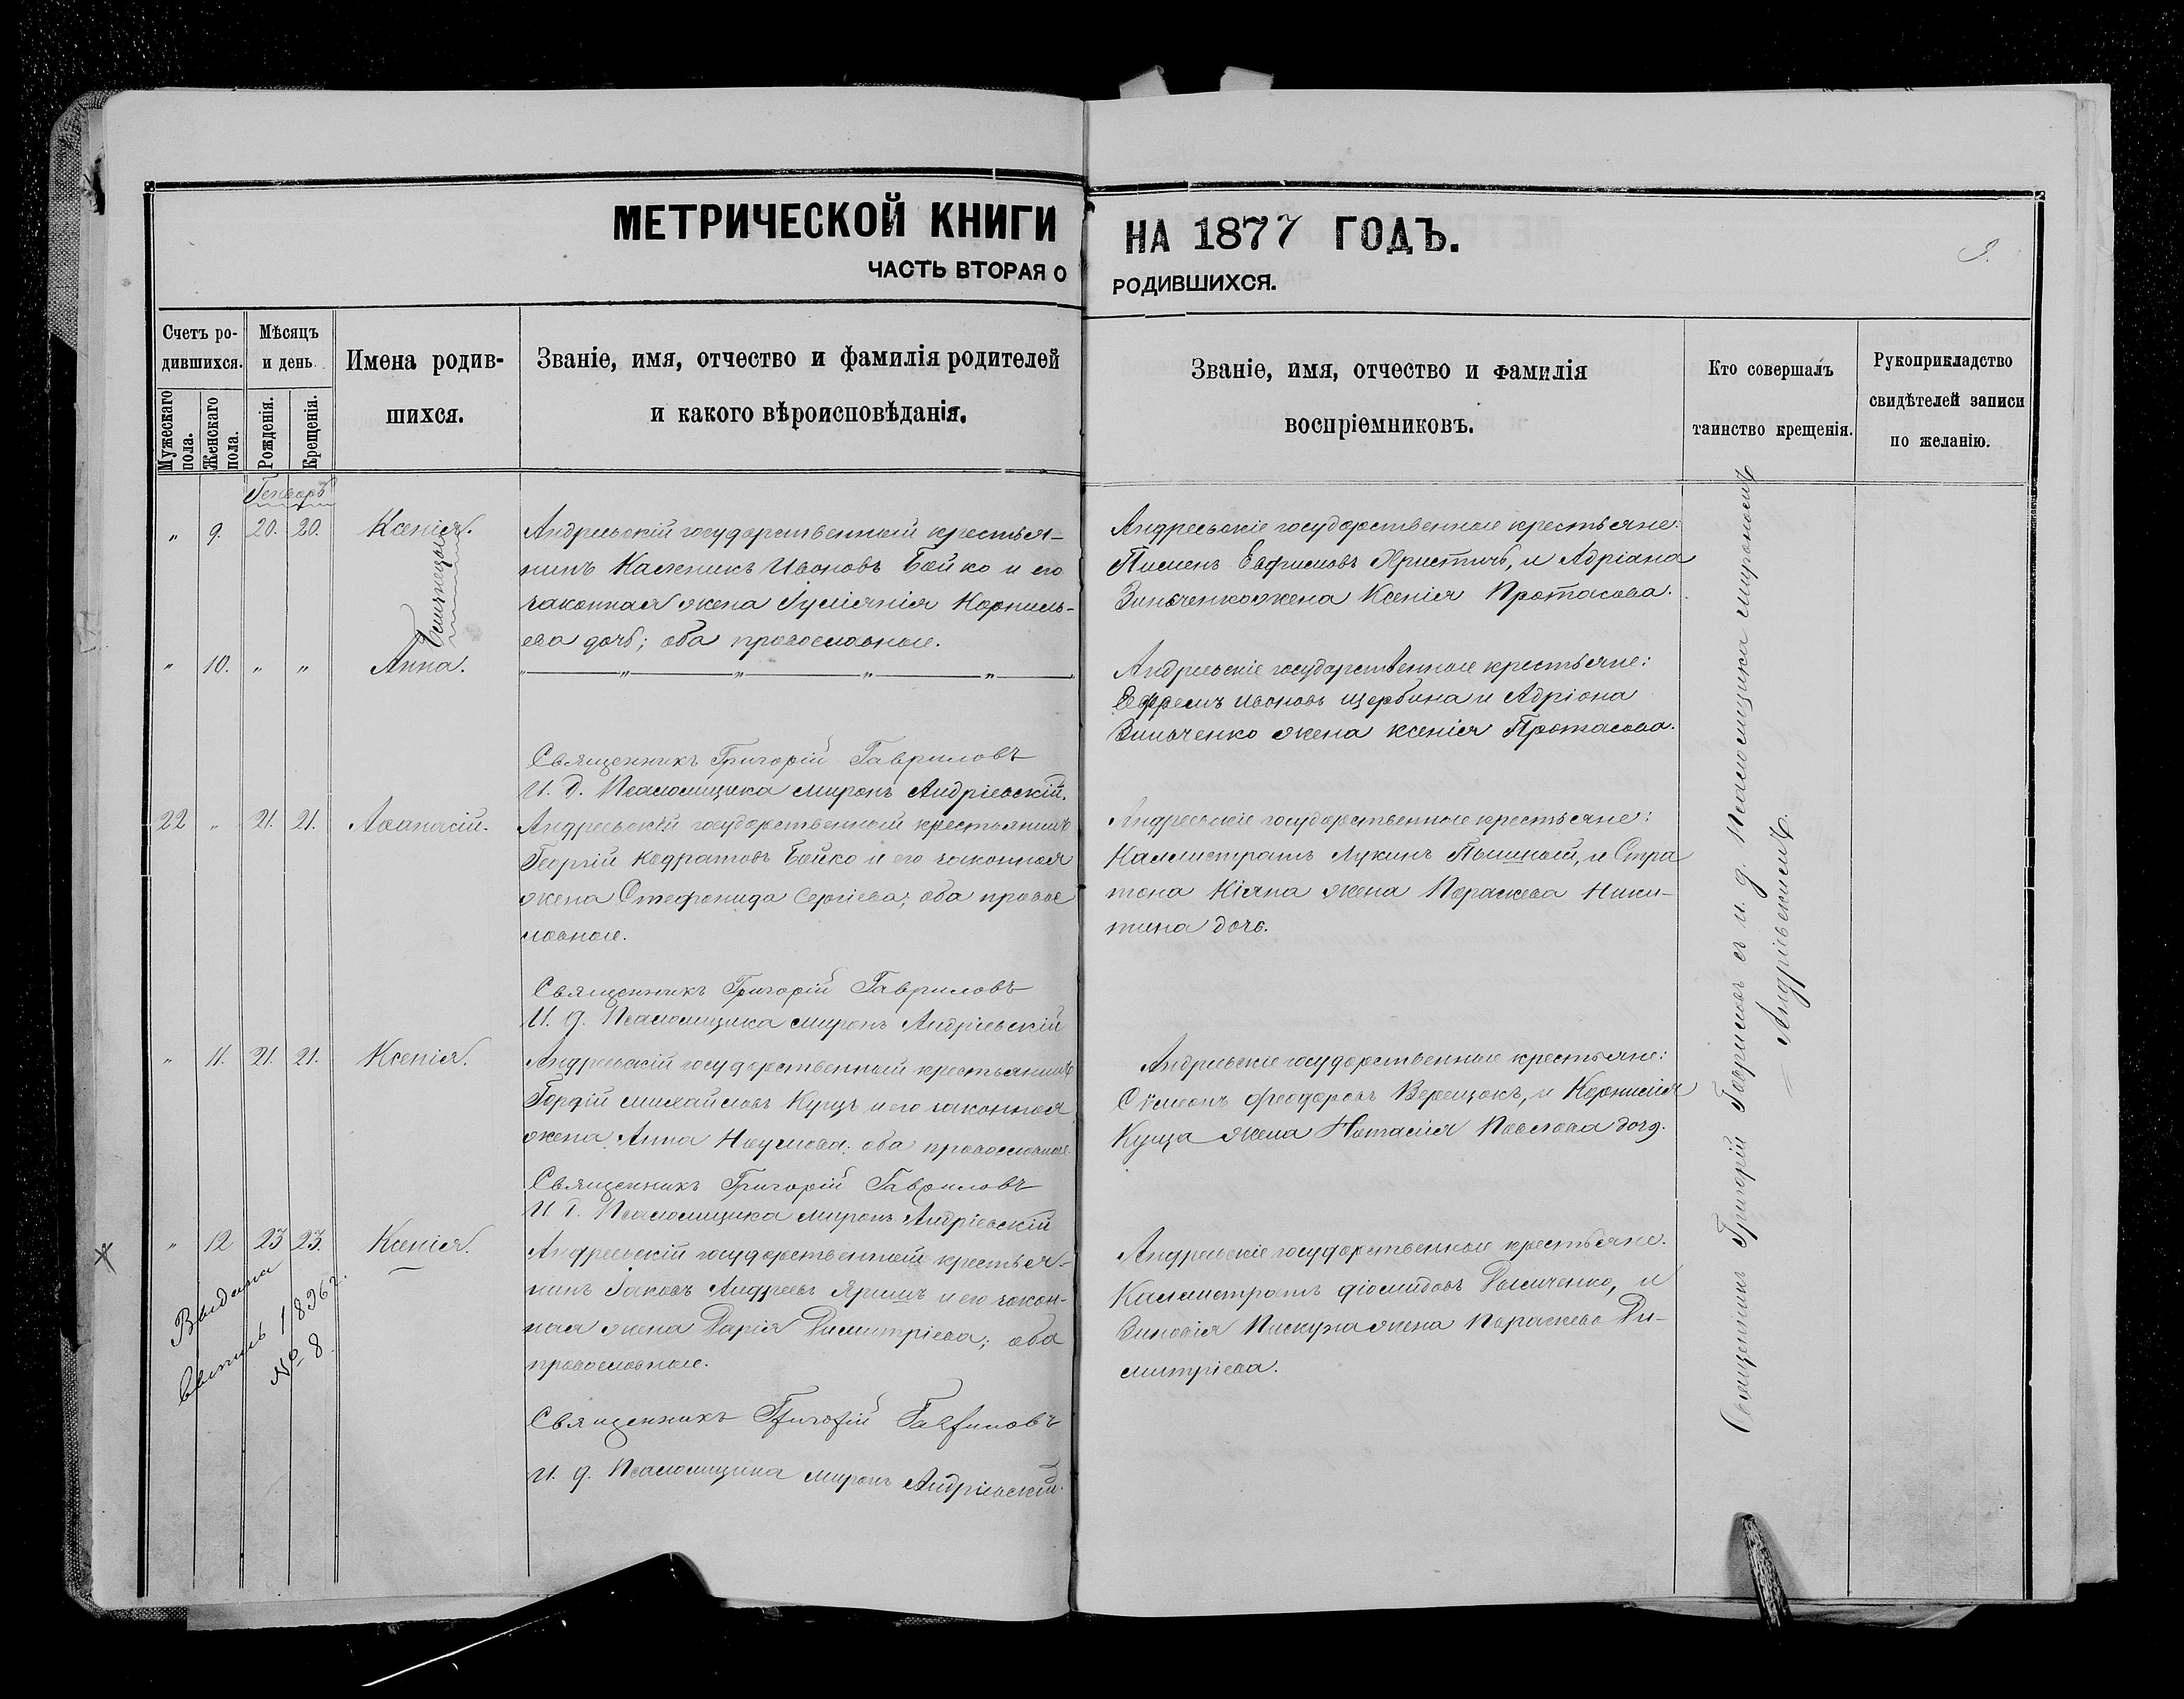 МЕТРИЧЕСКОЙ КНИГИ НА 1877 ГОДЪ.
ЧАСТЬ ВТОРАЯ О РОДИВШИХСЯ.
9.
Счетъ ро-
дившихся.
Мужескаго пола.
Женскаго пола.
Мѣсяцъ
и день
Рожденія.
Крещенія.
Имена родив-
шихся.
Званіе, имя, отчество и фамилія родителей
и какого вѣроисповѣданія.
Званіе, имя, отчество и фамилія
воспріемниковъ.
Кто совершалъ
таинство крещенія.
Рукоприкладство
свидѣтелей записи
по желанію.
Генварь
„ 9. 20. 20. Ксенія.
Близнецы
Андреевскій государственный крестья-
нинъ Каленикъ Ивановъ Бойко и его
законная жена Іуліанія Корниль-
ева дочь; оба православные.
Андреевскіе государственные крестьяне:
Пименъ Евфимовъ Христичъ, и Адріана
Зинченко жена Ксенія Протасова.
„ 10. „ „ Анна.
„ „ „ „ „
Андреевскіе государственные крестьяне:
Ефремъ Ивановъ Щербина и Адріана
Зинченко жена Ксенія Протасова.
Священникъ Григорій Гавриловъ
И. д. Псаломщика Миронъ Андріевскій.
22 „ 21. 21. Аѳанасій.
Андреевскій государственный крестьянинъ
Георгій Кодратовъ Бойко и его законная
жена Стефанида Сергіева; оба право
славные.
Андреевскіе государственные крестьяне:
Каллистратъ Лукинъ Пышный, и Стра
тона Кіяна жена Параскева Ники-
тина дочь.
Священникъ Григорій Гавриловъ
И. д. Псаломщика Миронъ Андріевскій
„ 11. 21. 21. Ксенія.
Андреевскій государственный крестьянинъ
Гордій Михайловъ Куцъ и его законная
жена Анна Наумова; оба православные
Андреевскіе государственные крестьяне:
Сѵмеонъ Феодоровъ Верещакъ, и Корнилія
Куца жена Наталія Павлова дочь.
Священникъ Григорій Гавриловъ
И. д. Псаломщика Миронъ Андріевскій
„ 12 23 23. Ксенія.
Андреевскій государственный крестья-
нинъ Іаковъ Андреевъ Яришъ и его закон-
ная жена Дарія Димитріева; оба
православные.
Андреевскіе государственные крестьяне.
Каллистратъ Діомидовъ Дымченко, и
Зиновія Пискуна жена Параскева Ди-
митріева.
Выдана
выпись 1896 г.
№ 8.
Священникъ Григорій Гавриловъ
И. д. Псаломщика Миронъ Андріевскій.
Священникъ Григорій Гавриловъ съ и. д. Псаломщика Мирономъ
Андріевскимъ.